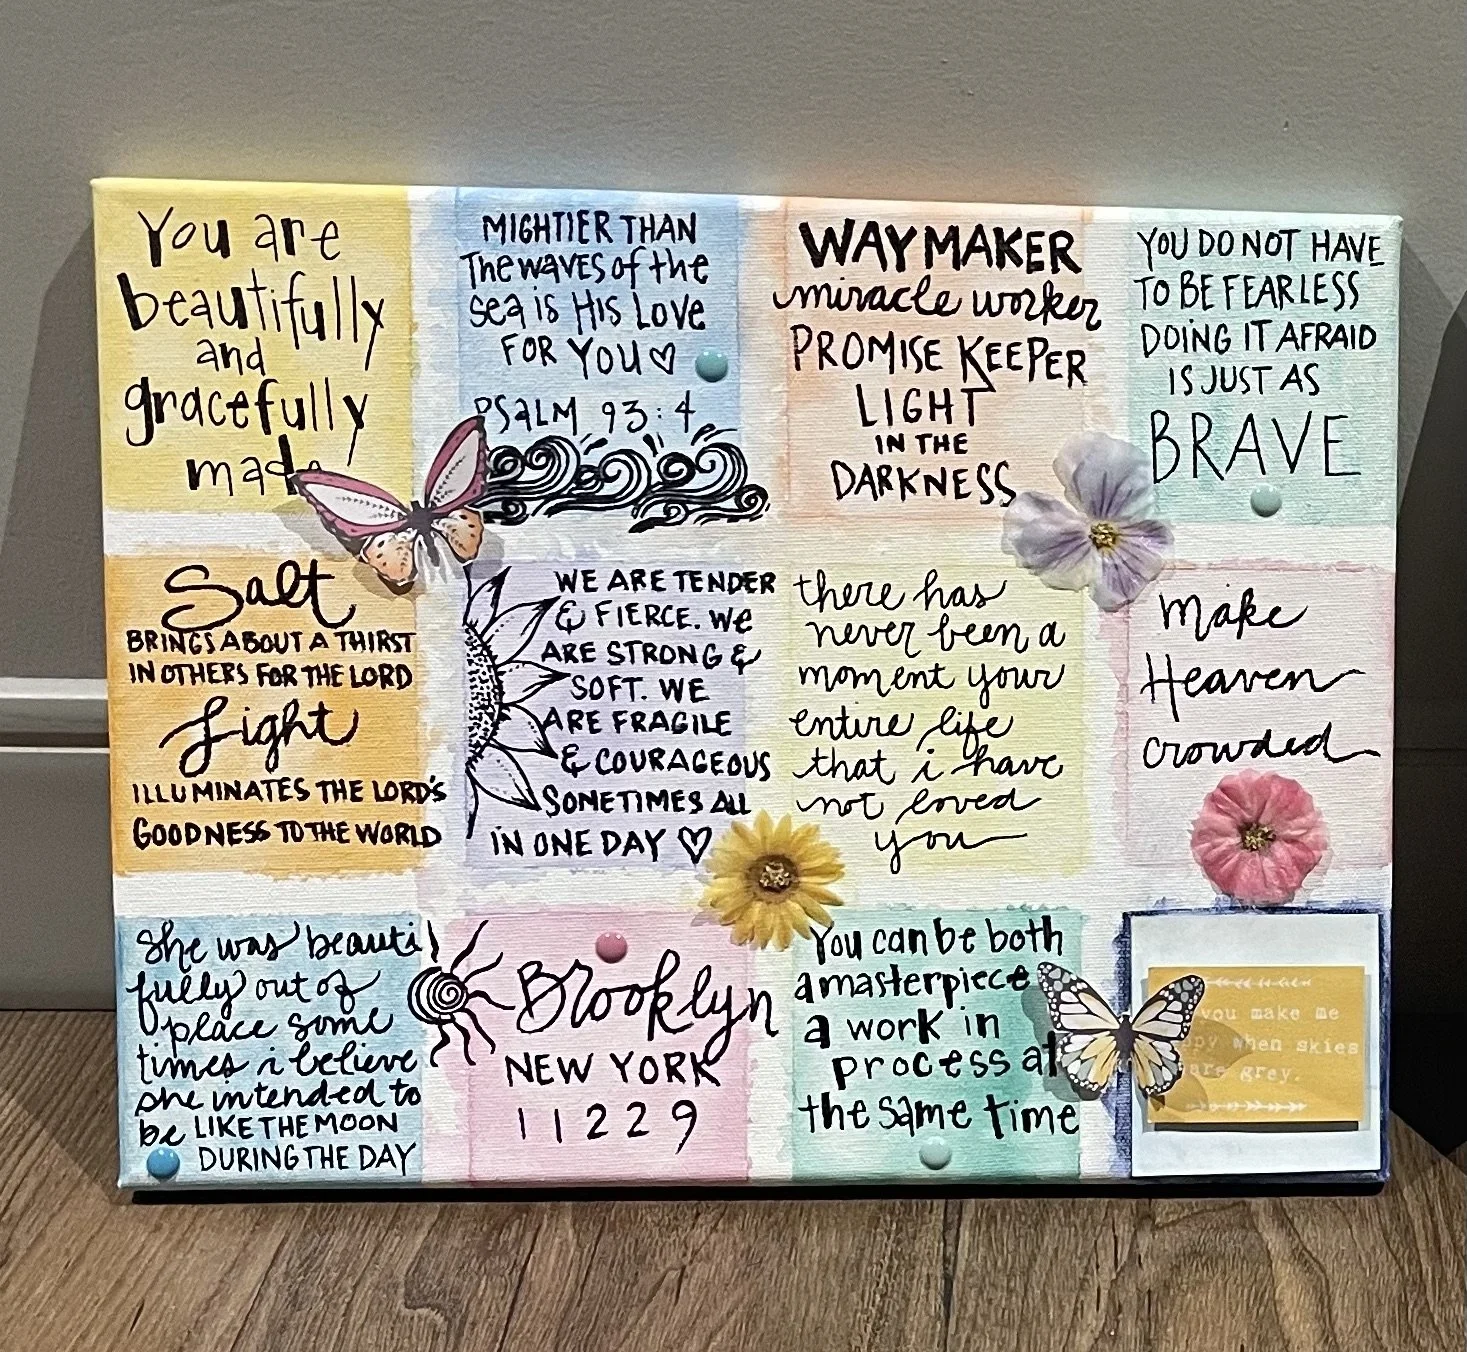 You are
beautifully
and
gracefully
made
MIGHTIER THAN
The waves of the
sea is His Love
FOR YOU
PSALM 93:4
WAY MAKER
miracle worker
PROMISE KEEPER
LIGHT
IN THE
DARKNESS
YOU DO NOT HAVE
TO BE FEARLESS
DOING IT AFRAID
IS JUST AS
BRAVE
Salt
BRINGS ABOUT A THIRST
IN OTHERS FOR THE LORD
Light
ILLUMINATES THE LORD'S
GOODNESS TO THE WORLD
WE ARE TENDER
& FIERCE. We
ARE STRONG &
SOFT. WE
ARE FRAGILE
& COURAGEOUS
SOMETIMES ALL
IN ONE DAY
there has
never been a
moment your
entire life
that i have
not loved
you
Make
Heaven
crowded
She was beauti
fully out of
place some
times i believe
she intended to
be LIKE THE MOON
DURING THE DAY
Brooklyn
NEW YORK
11229
You can be both
a masterpiece
a work in
process at
the same time
you make me
when skies
are grey.